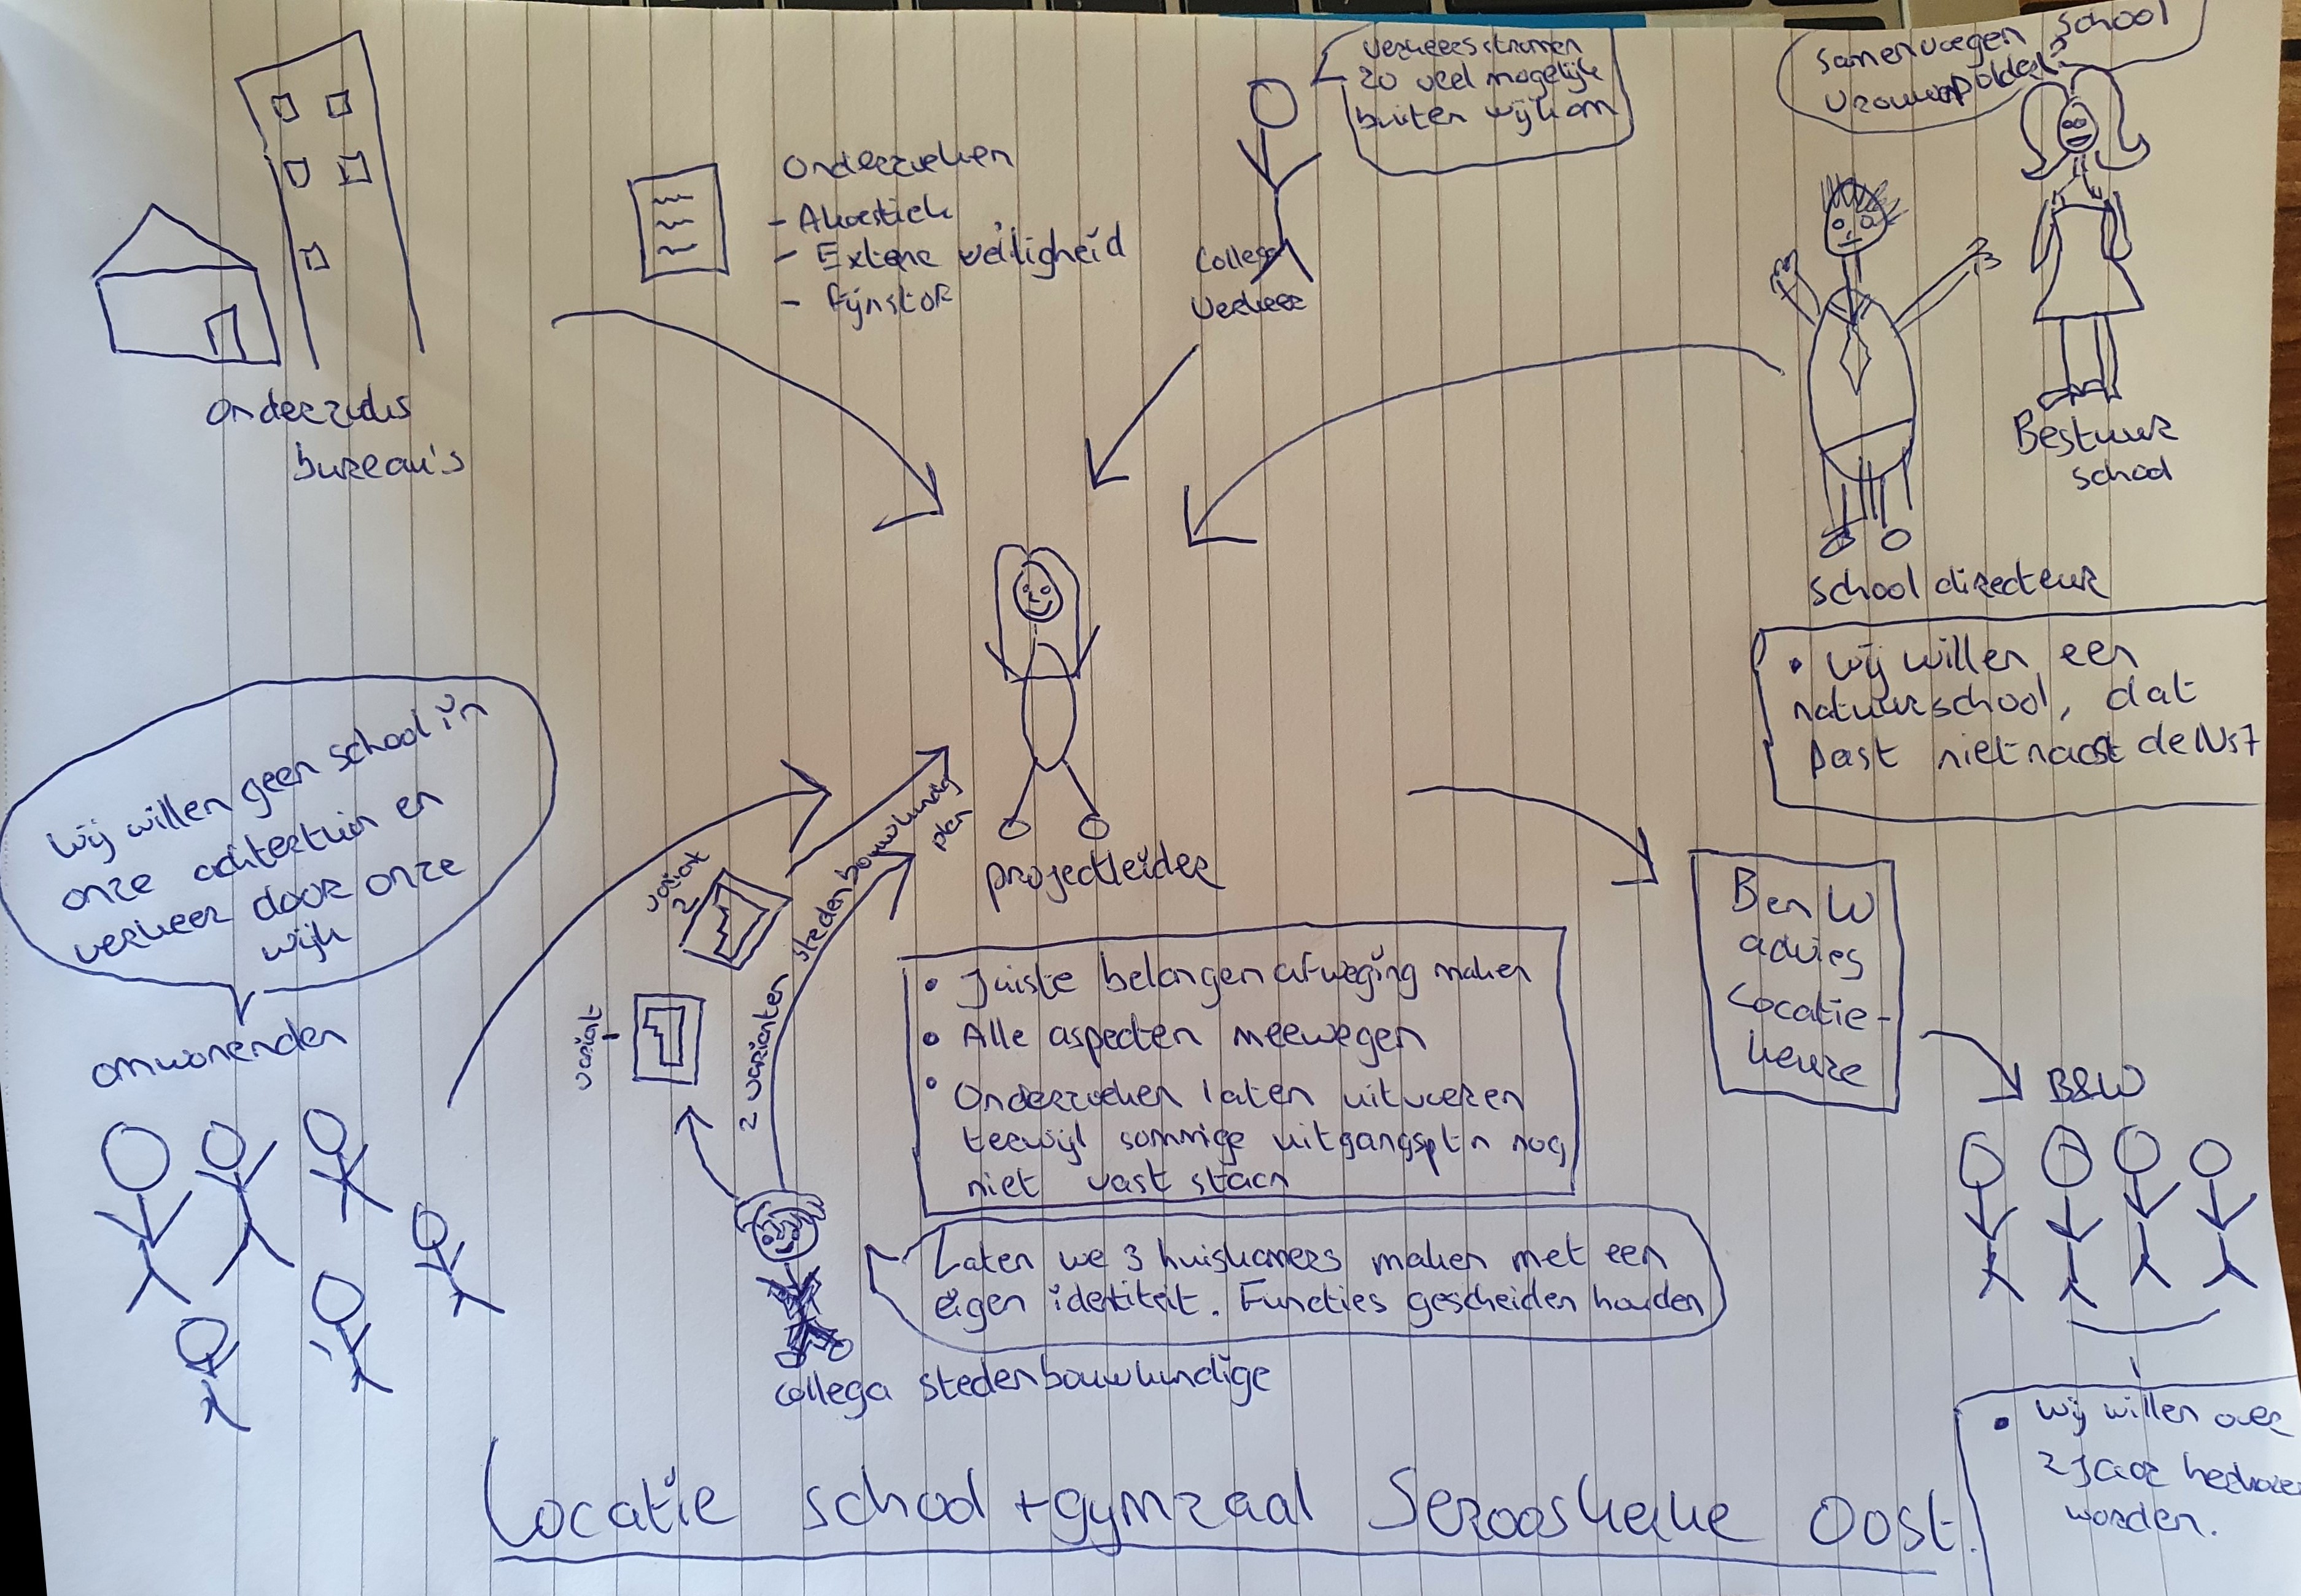 Onderzoeks
bureau's
Onderzoeken
- Akoestiek
- Externe veiligheid
- Fijnstof
verkeersstromen
zo veel mogelijk
buiten wijk om
Collega
Verkeer
Samenvoegen school
Vrouwenpolder?
Bestuur
school
school directeur
• Wij willen een
natuurschool, dat
past niet naast de N57
Wij willen geen school in
onze achtertuin en
verkeer door onze
wijk
omwonenden
variant
2
variant
1
2 varianten stedenbouwkundig
plan
projectleider
• Juiste belangenafweging maken
• Alle aspecten meewegen
• Onderzoeken laten uitvoeren
terwijl sommige uitgangsptn nog
niet vast staan
Laten we 3 huiskamers maken met een
eigen identiteit. Functies gescheiden houden
collega stedenbouwkundige
B en W
advies
Locatie-
keuze
B&W
• Wij willen over
2 jaar herkozen
worden.
Locatie school + gymzaal Serooskerke Oost.